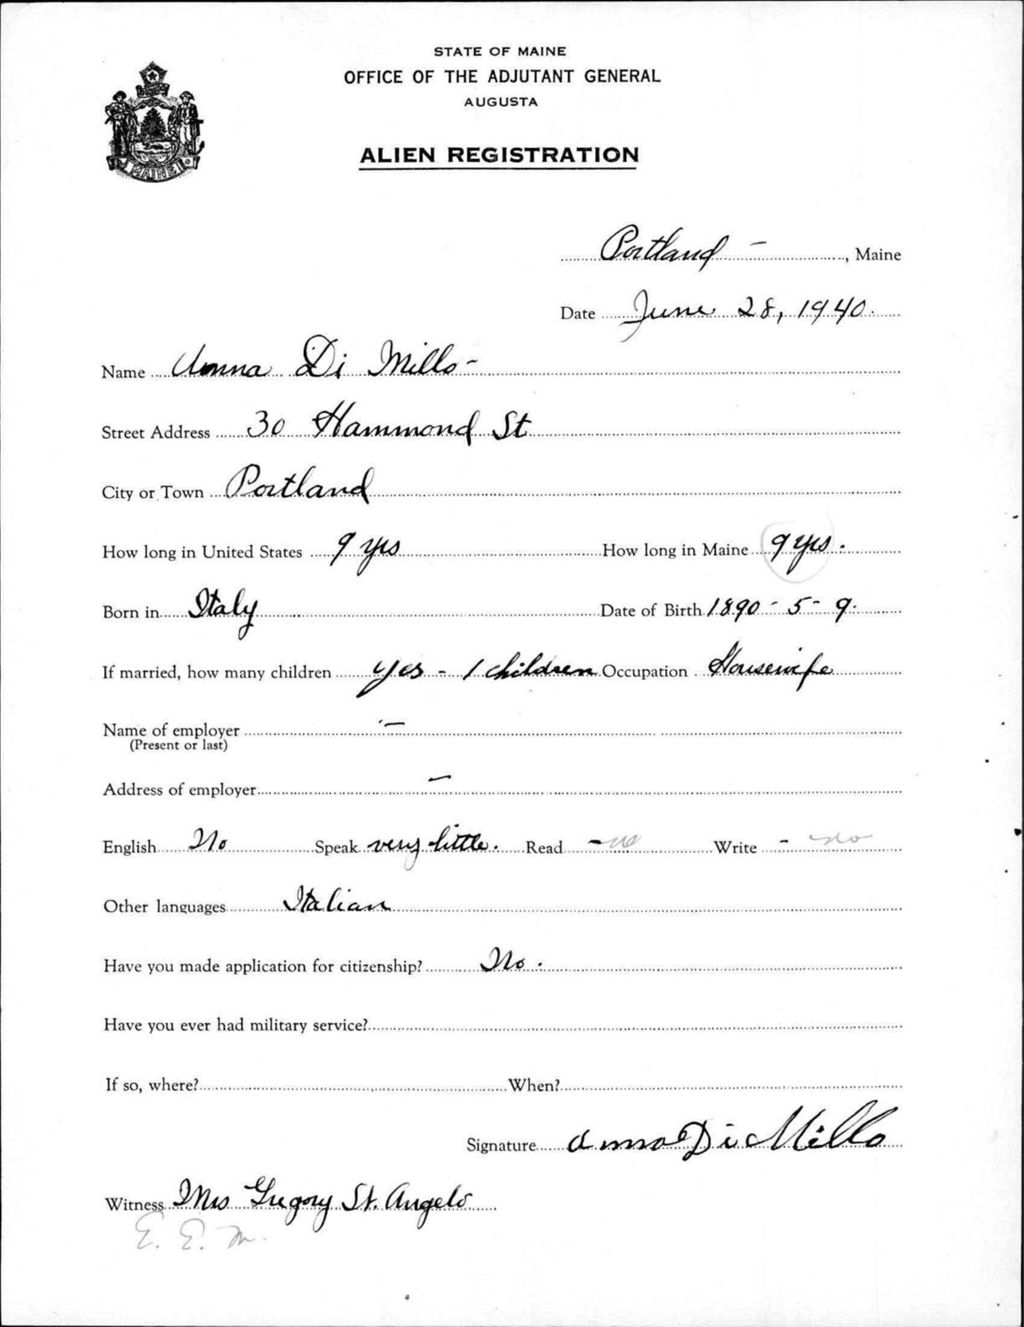 STATE OF MAINE
OFFICE OF THE ADJUTANT GENERAL
AUGUSTA
ALIEN REGISTRATION
MAINE
Portland -, Maine
Date June 28, 1940.
Name Anna Di Millo -
Street Address 30 Hammond St
City or Town Portland
How long in United States 9 yrs How long in Maine 9 yrs.
Born in Italy Date of Birth 1890 - 5 - 9.
If married, how many children yes - 1 children Occupation Housewife
Name of employer -
(Present or last)
Address of employer -
English No Speak very little. Read - no Write - no
Other languages Italian
Have you made application for citizenship? No.
Have you ever had military service?
If so, where? When?
Signature Anna Di Millo
Witness Mrs Gregory St. Angelo
E. E. M.